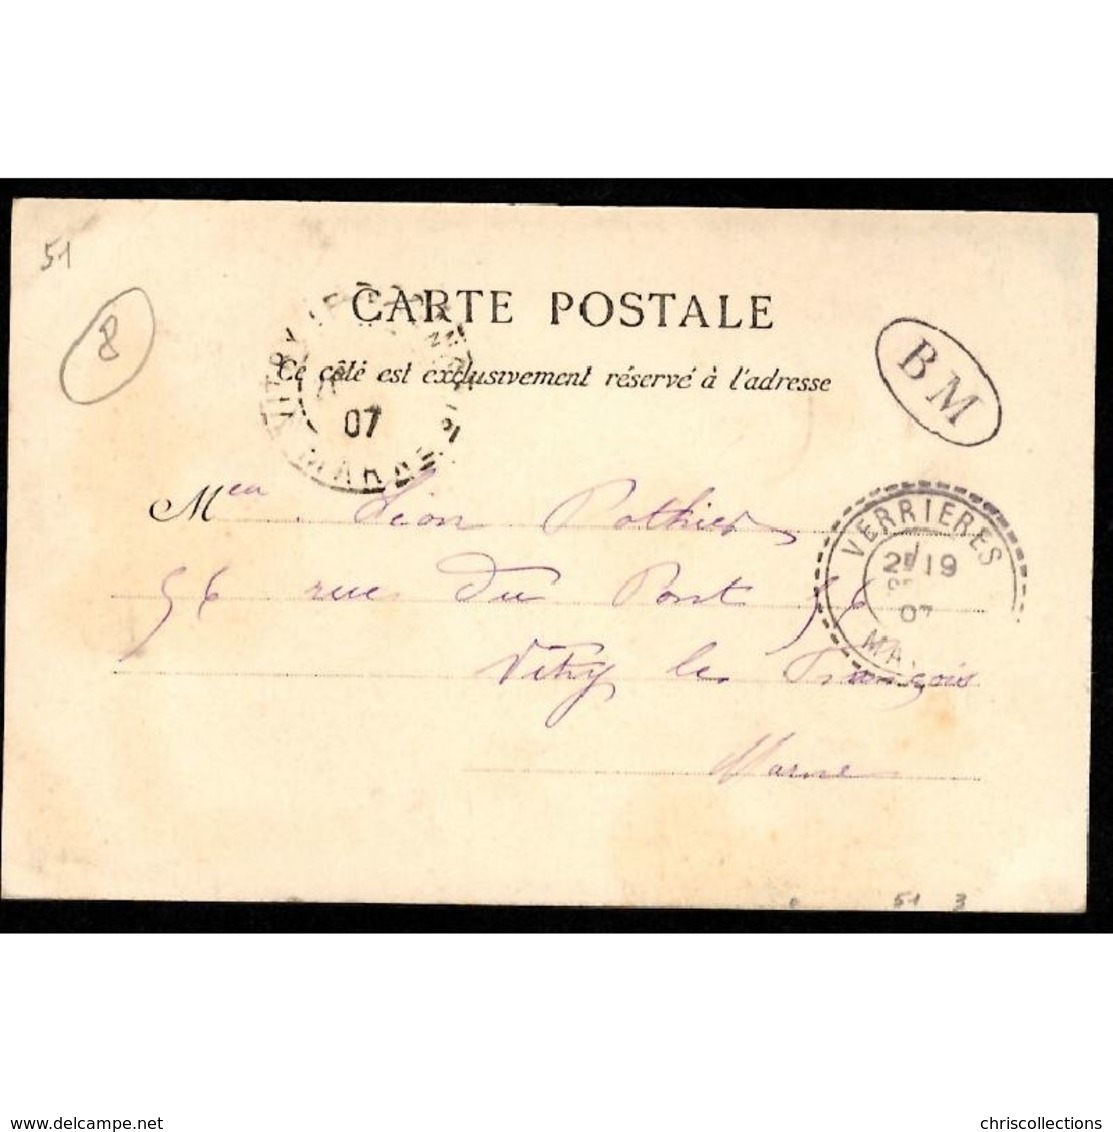 51
8
CARTE POSTALE
Ce côté est exclusivement réservé à l'adresse
BM
VITRY LE FRANÇOIS
07
MARNE
VERRIERES
2E/19
07
MA
M Léon Pothier
56 rue du Pont 56
Vitry le François
Marne
51 3
www.delcampe.net
chriscollections